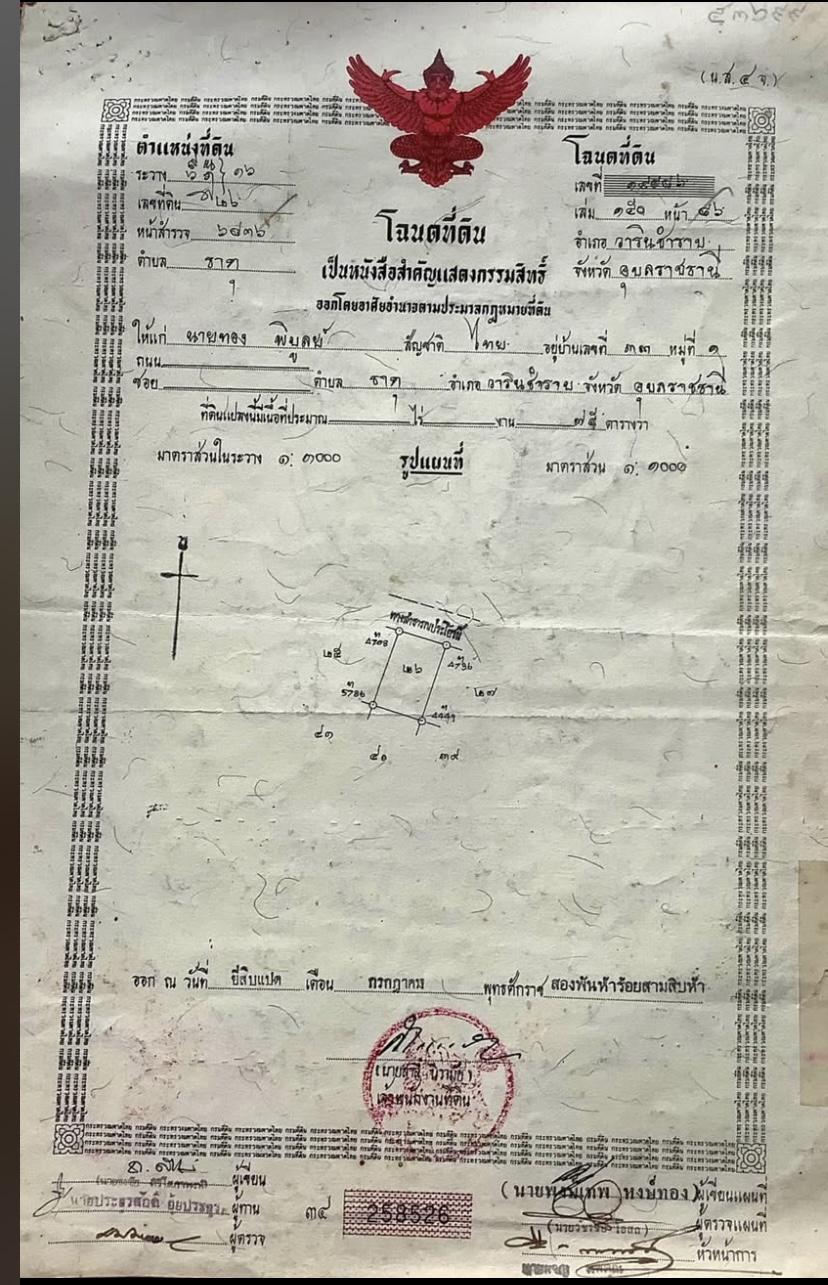 (น.ส. ๔ จ.)
ตำแหน่งที่ดิน
ระวาง ๑๖
เลขที่ดิน ๒๖
หน้าสำรวจ ๖๙๓๖
ตำบล ธาตุ
โฉนดที่ดิน
เลขที่
เล่ม ๑๕๐ หน้า ๘๖
อำเภอ วารินชำราบ
จังหวัด อุบลราชธานี
โฉนดที่ดิน
เป็นหนังสือสำคัญแสดงกรรมสิทธิ์
ออกโดยอาศัยอำนาจตามประมวลกฎหมายที่ดิน
ให้แก่ นายทอง พิบูลย์ สัญชาติ ไทย อยู่บ้านเลขที่ ๓๓ หมู่ที่ ๑
ถนน
ซอย ตำบล ธาตุ อำเภอ วารินชำราบ จังหวัด อุบลราชธานี
ที่ดินแปลงนี้มีเนื้อที่ประมาณ ไร่ งาน ๗๕ ตารางวา
มาตราส่วนในระวาง ๑: ๑๐๐๐ รูปแผนที่ มาตราส่วน ๑: ๑๐๐๐
ทางสาธารณประโยชน์
๒๕
๒๖
๒๗
๔๑
๔๑ ๓๙
ออก ณ วันที่ ยี่สิบแปด เดือน กรกฎาคม พุทธศักราช สองพันห้าร้อยสามสิบห้า
เจ้าพนักงานที่ดิน
ผู้เขียน
ผู้ทาน
ผู้ตรวจ
๓๔ 258526
(นายพงษ์เทพ หงษ์ทอง) ผู้เขียนแผนที่
ผู้ตรวจแผนที่
หัวหน้าการ